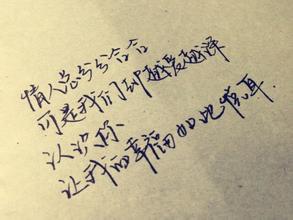 情人总分分合合
可是我们却越爱越深
认识你
让我的幸福如此悦耳